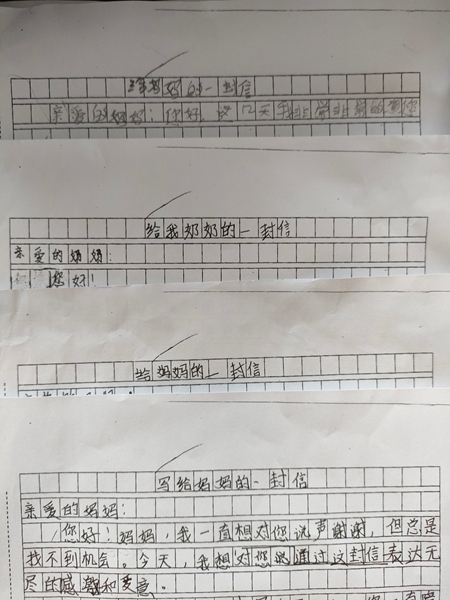 给妈妈的一封信
亲爱的妈妈:你好,这几天我非常非常的想你
给我奶奶的一封信
亲爱的奶奶:
您好!
给妈妈的一封信
写给妈妈的一封信
亲爱的妈妈:
您好!妈妈,我一直想对您说声谢谢,但总是
找不到机会。今天,我想对您通过这封信表达无
尽的感激和爱意。